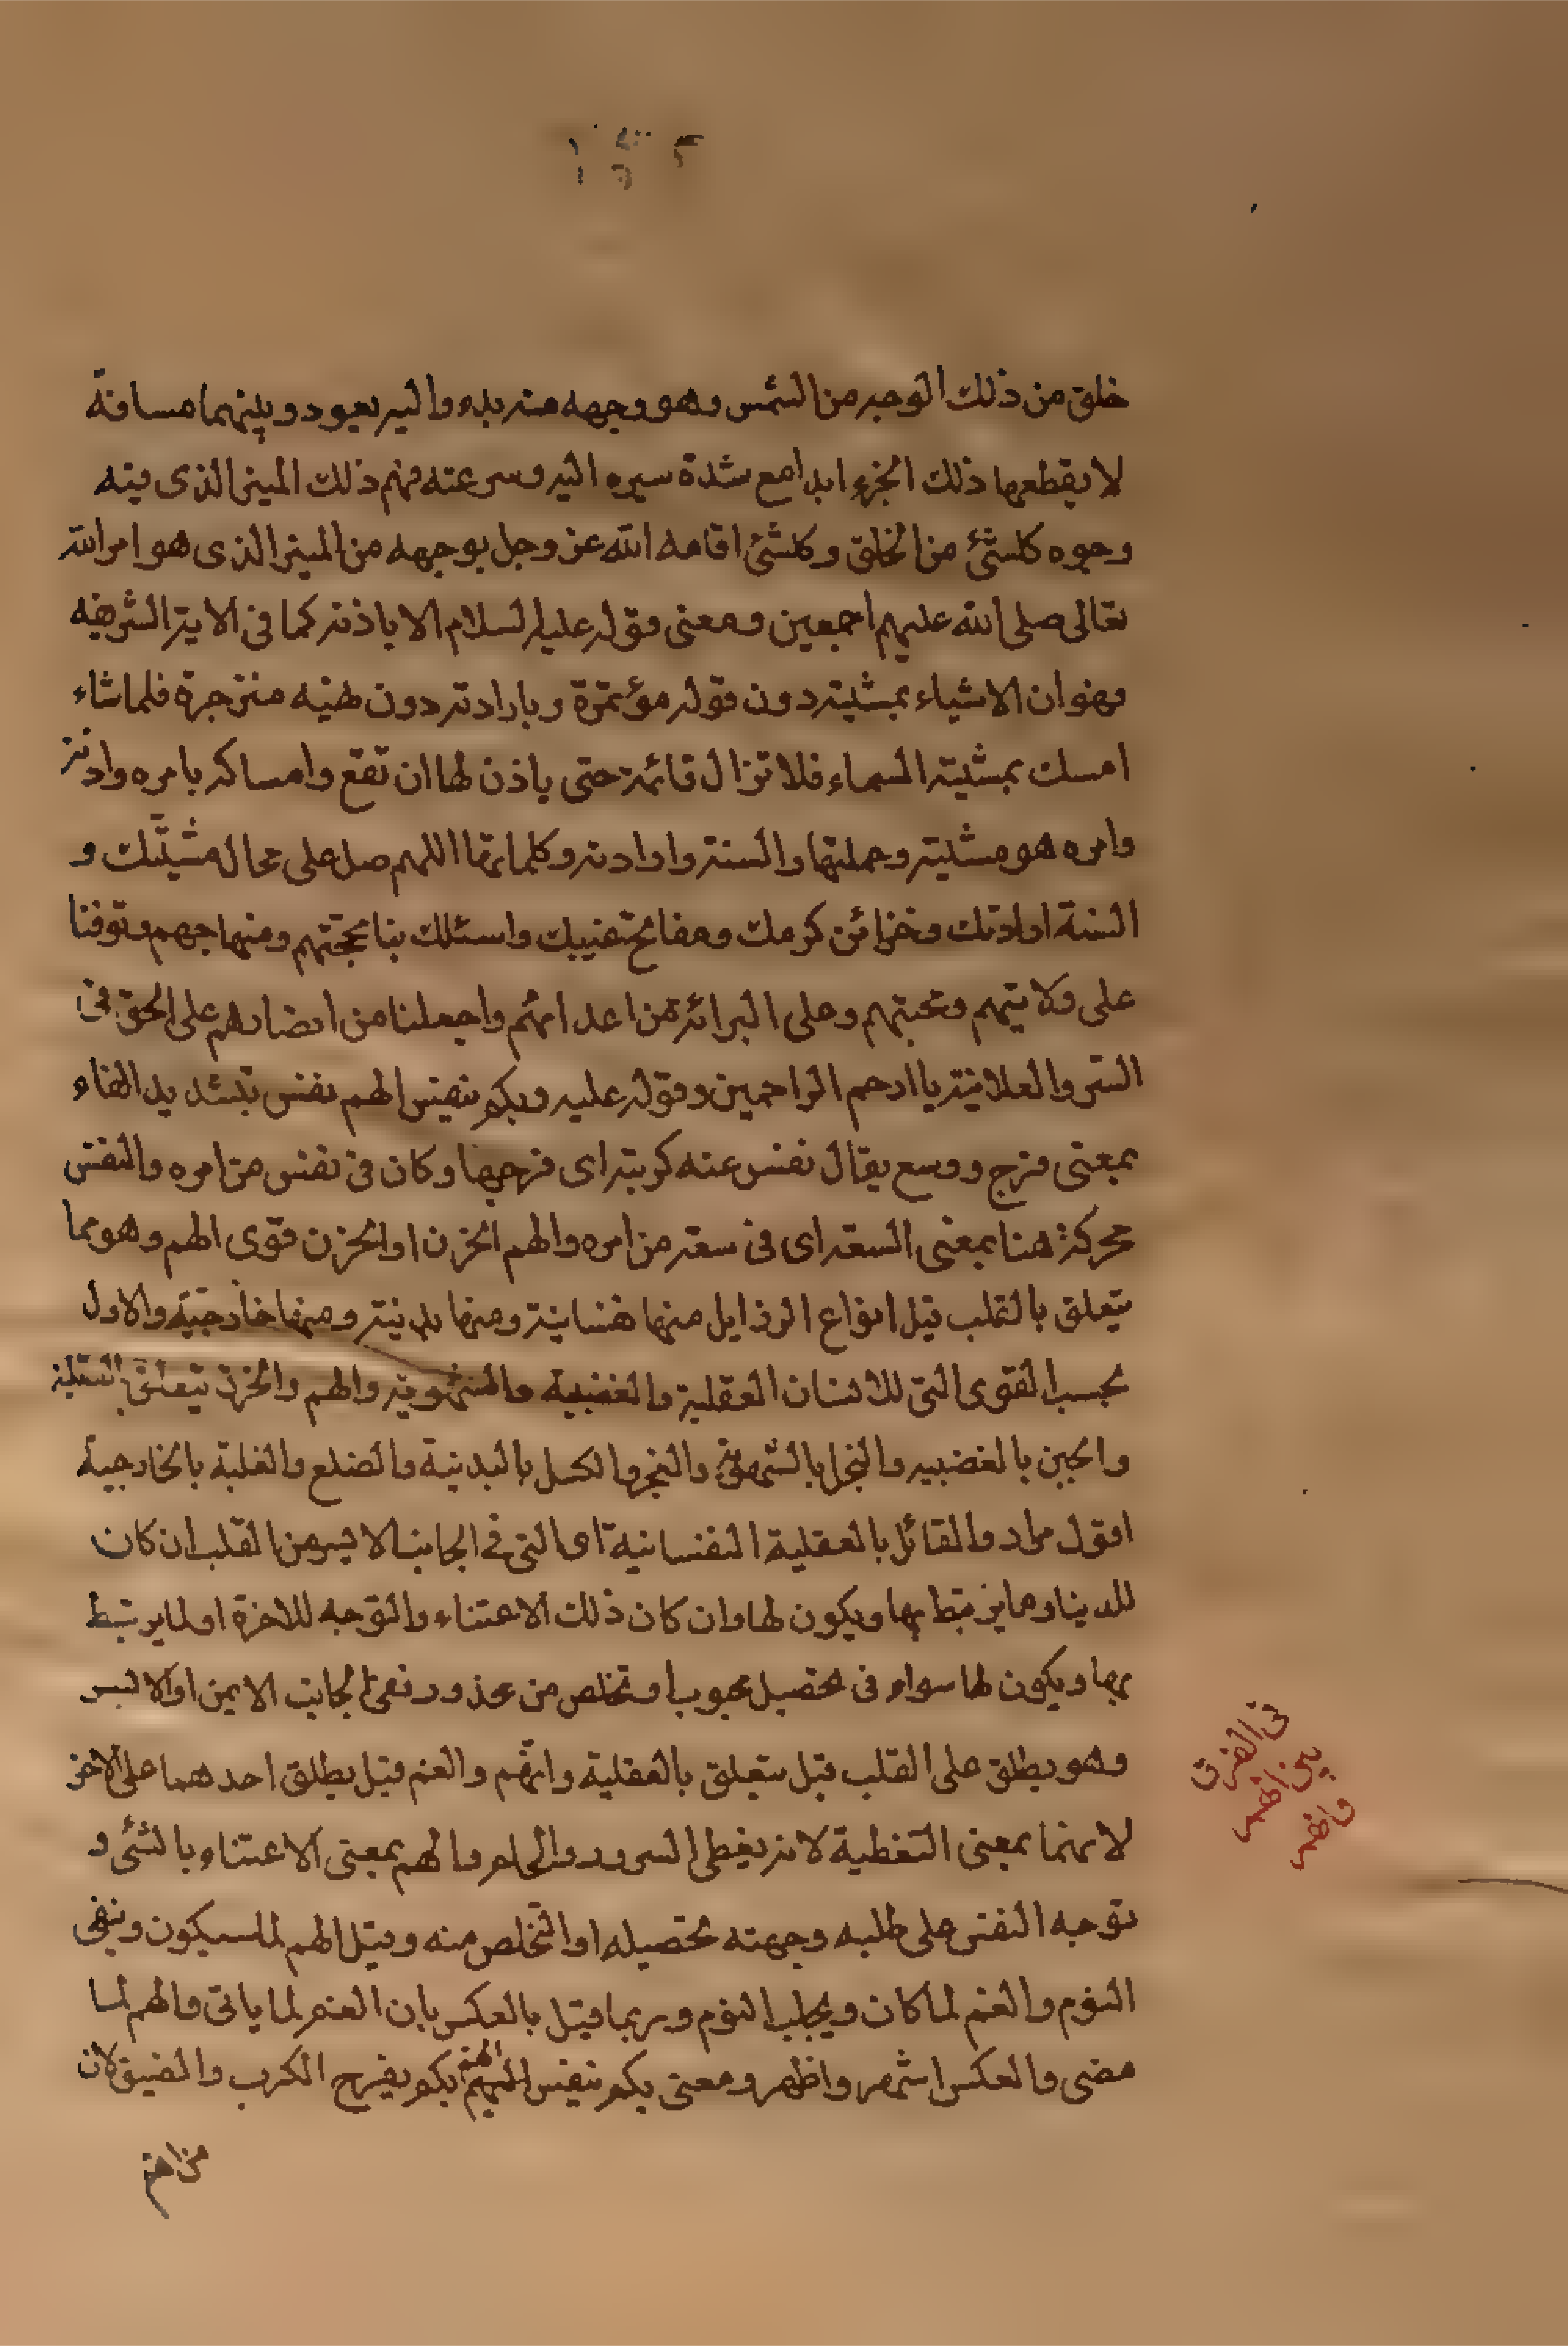 خلق من ذلك الوجه من الشمس وهو وجهه منه بدء واليه يعود وبينهما مسافة
لا يقطعها ذلك الجزء ابدا مع شدة سيره اليه وسرعته فهم ذلك المنير الذى فيه
وجوه كلشئ من الخلق وكلشئ اقامه الله عز وجل بوجهه من المنير الذى هو امر الله
تعالى صلى الله عليهم اجمعين ومعنى قوله عليه السلام الا باذنه كما فى الاية الشريفه
فهو ان الاشياء بمشيته دون قوله مؤتمرة وبارادته دون نهيه منزجرة فلما شاء
امسك بمشيته السماء فلا تزال قائمة حتى ياذن لها ان تقع وامساكه بامره واذنه
وامره هو مشيته وحملتها والسنة وارادته وكلماتها اللهم صل على محال مشيتك و
السنة ارادتك وخزائن كرمك ومفاتح غيبك واسئلك بنا محجتهم ومنهاجهم وتوفنا
على ولايتهم ومحبتهم وعلى البرائة من اعدائهم واجعلنا من انصارهم على الحق فى
السر والعلانية يا ارحم الراحمين وقوله عليه وبكم ينفس الهم نفس بتشديد الفاء
بمعنى فرج ووسع يقال نفس عنه كربته اى فرجها وكان فى نفس من امره والنفس
محركة هنا بمعنى السعة اى فى سعة من امره والهم الحزن او الحزن قوى الهم وهو مما
يتعلق بالقلب قيل انواع الرذايل منها نفسانية ومنها بدنية ومنها خارجية والاول
بحسب القوى التى للانسان العقلية والغضبية والشهوية والهم والحزن يتعلق بالعقلية
والجبن بالغضبيه والبخل بالشهوية والعجز والكسل بالبدنية والضلع والغلبة بالخارجية
اقول مراد القائل بالعقلية النفسانية اى التى فى الجانب الايسر من القلب ان كان
للدينا وما يرتبط بها ويكون لها وان كان ذلك الاعتناء والتوجه للاخرة او لما يرتبط
بها ويكون لها سواء فى تحصيل محبوب او تخلص من محذور فعن الجانب الايمن او الايسر
وهو يطلق على القلب قيل يتعلق بالعقلية والهم والغم قيل يطلق احدهما على الاخر
لانهما بمعنى التغطية لانه يغطى السرور والحلم والهم بمعنى الاعتناء بالشئ و
توجه النفس على طلبه وجهته تحصيله او التخلص منه وقيل الهم لما سيكون وينفى
النوم والغم لما كان ويجلب النوم وربما قيل بالعكس بان الغم لما ياتى والهم لما
مضى والعكس اشهر واظهر ومعنى بكم ينفس الهم بكم يفرج الكرب والضيق لان
من اهم
فى الفرق
بين الهم
والغم